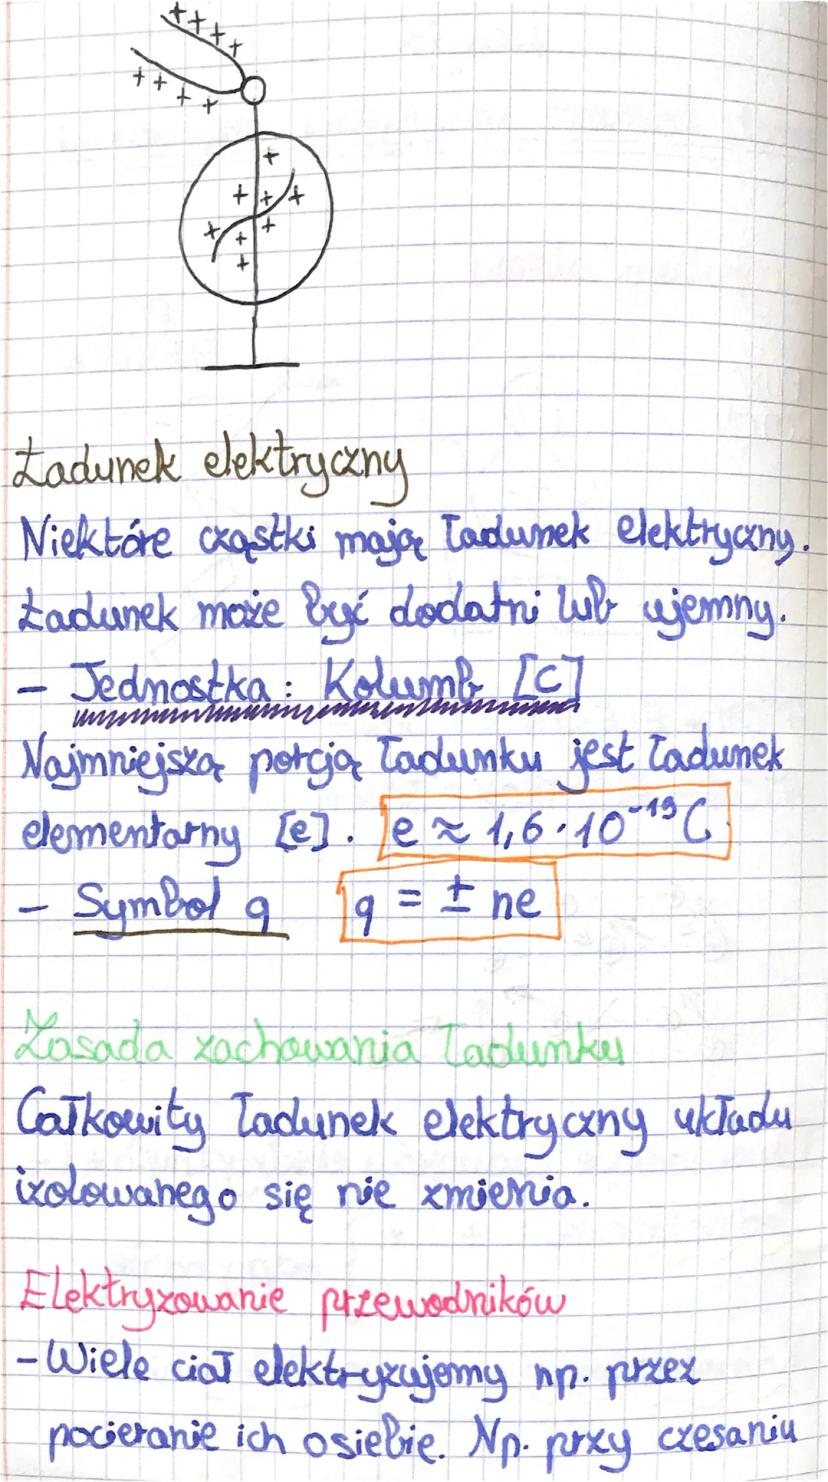 + + + +
+ + + +
+
+ + +
+ + +
+
Ładunek elektryczny
Niektóre cząstki mają ładunek elektryczny.
Ładunek może być dodatni lub ujemny.
- Jednostka: Kolumb [C]
Najmniejszą porcją ładunku jest ładunek
elementarny [e]. e ≈ 1,6 · 10⁻¹⁹ C
- Symbol q q = ± ne
Zasada zachowania ładunku
Całkowity ładunek elektryczny układu
izolowanego się nie zmienia.
Elektryzowanie przewodników
- Wiele ciał elektryzujemy np. przez
pocieranie ich osiebie. Np. przy czesaniu